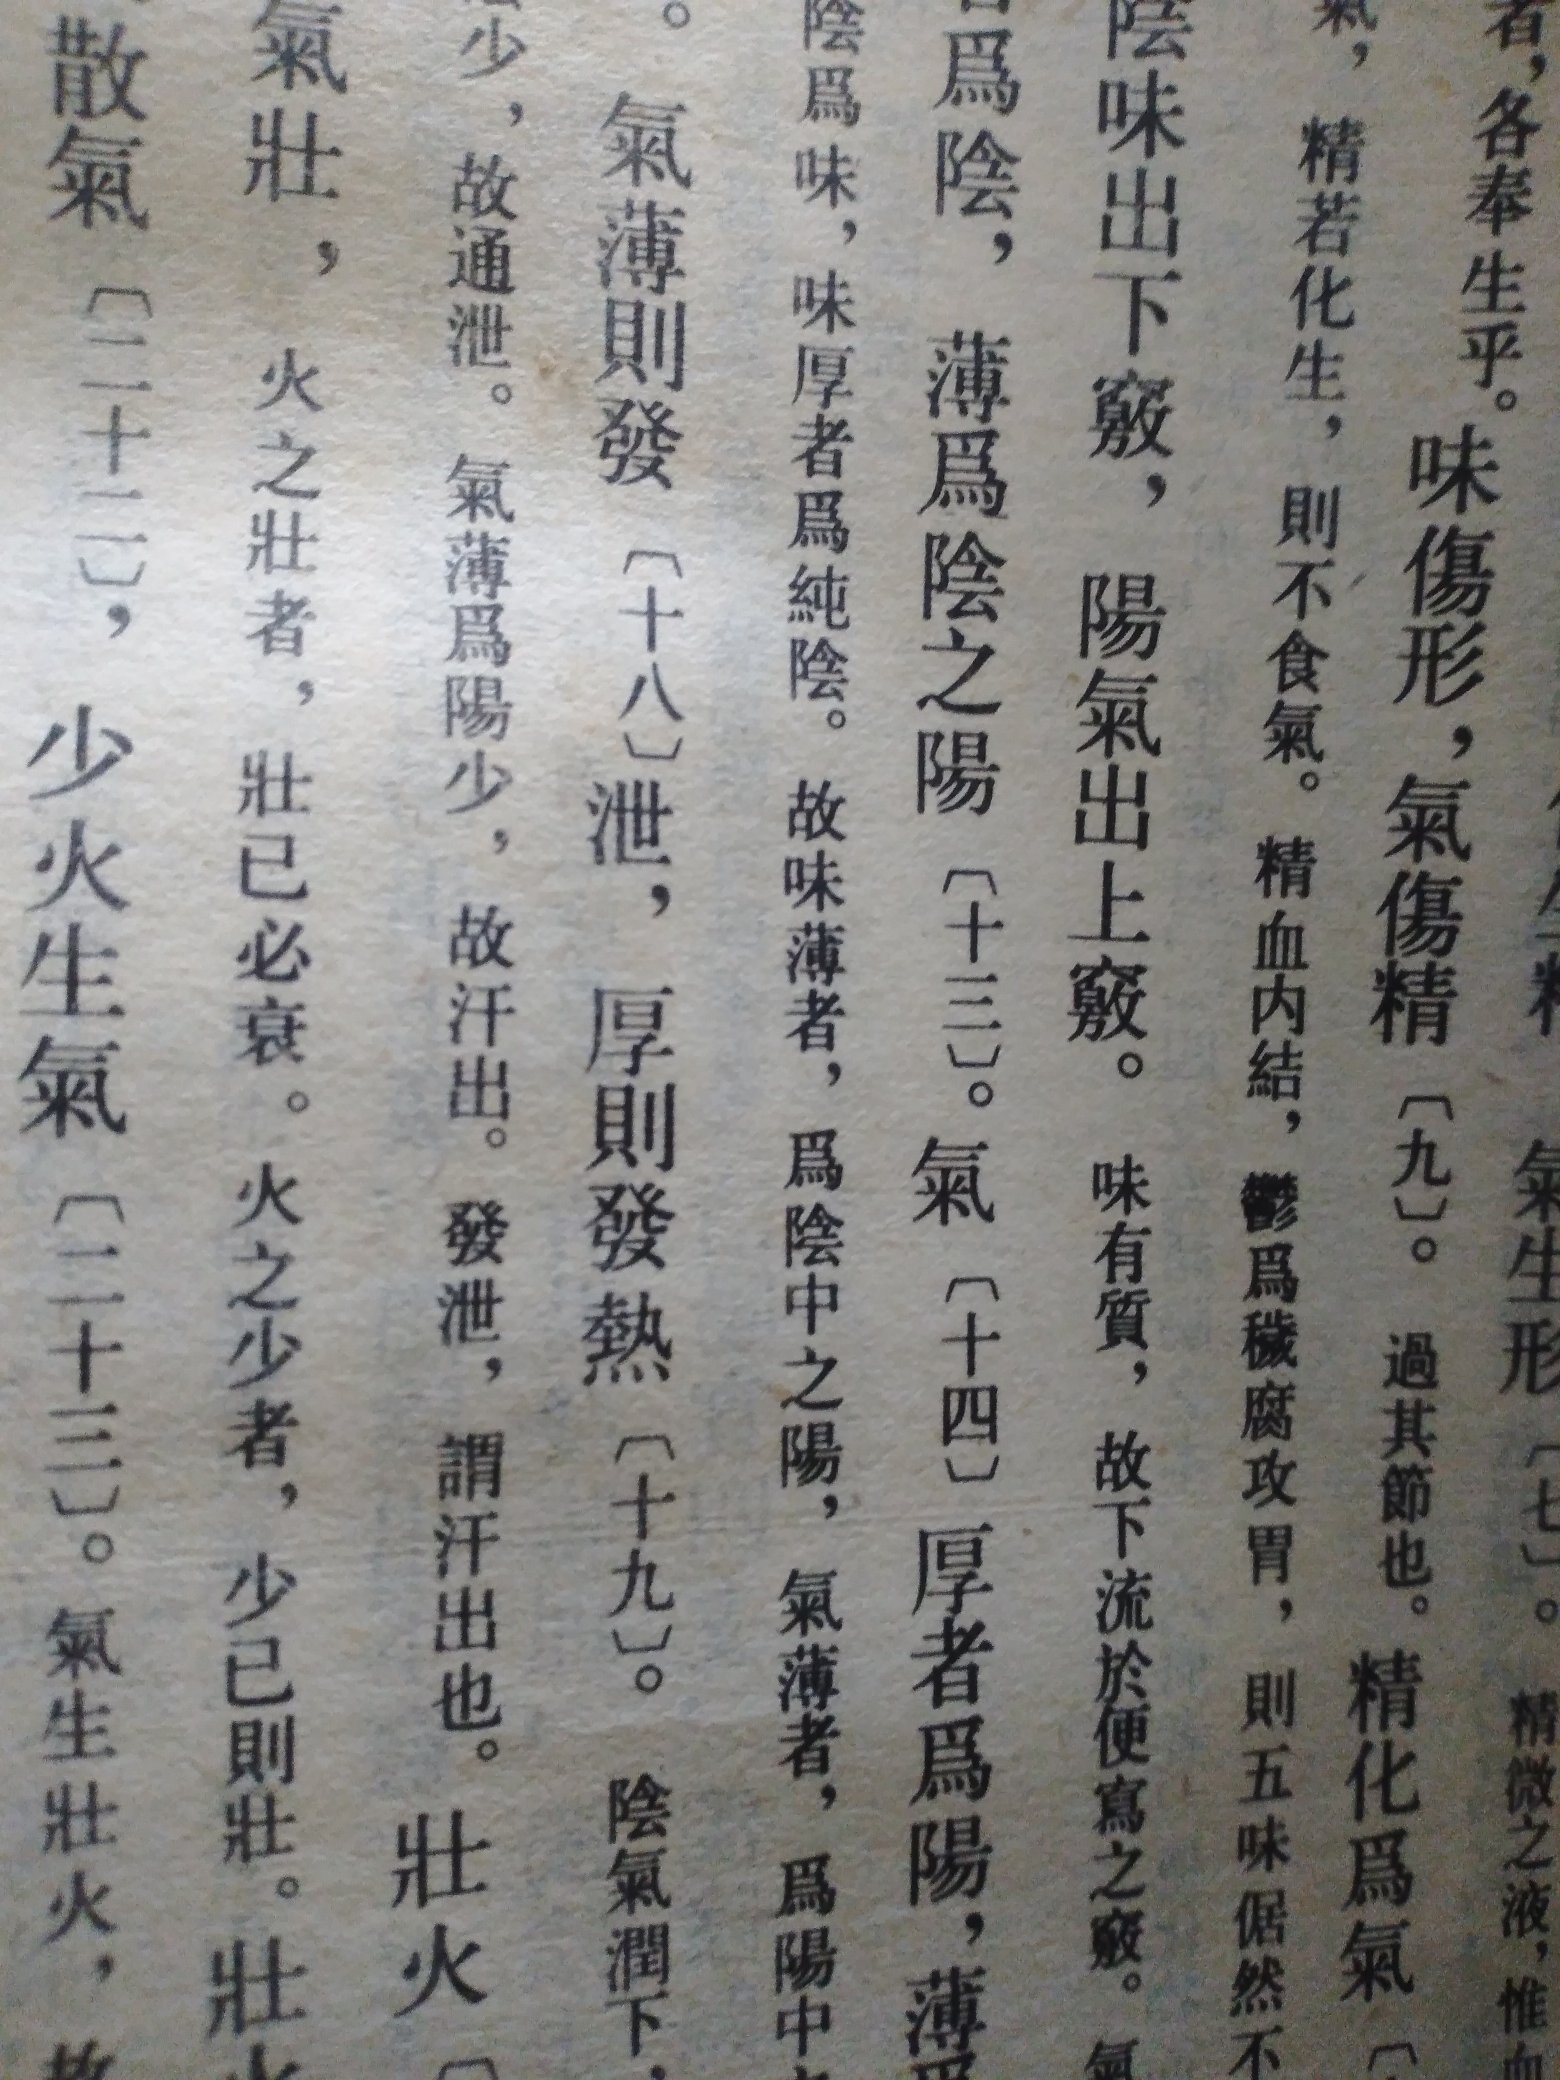 氣生形〔七〕。精微之液，惟血
者，各奉生乎。味傷形，氣傷精〔九〕。過其節也。精化爲氣〔
氣，精若化生，則不食氣。精血内結，鬱爲穢腐攻胃，則五味倨然不
陰味出下竅，陽氣出上竅。味有質，故下流於便寫之竅。氣
爲陰，薄爲陰之陽〔十三〕。氣〔十四〕厚者爲陽，薄爲
陰爲味，味厚者爲純陰。故味薄者，爲陰中之陽，氣薄者，爲陽中
。氣薄則發〔十八〕泄，厚則發熱〔十九〕。陰氣潤下，
少，故通泄。氣薄爲陽少，故汗出。發泄，謂汗出也。壯火〔
氣壯，火之壯者，壯已必衰。火之少者，少已則壯。壯火
散氣〔二十二〕，少火生氣〔二十三〕。氣生壯火，故